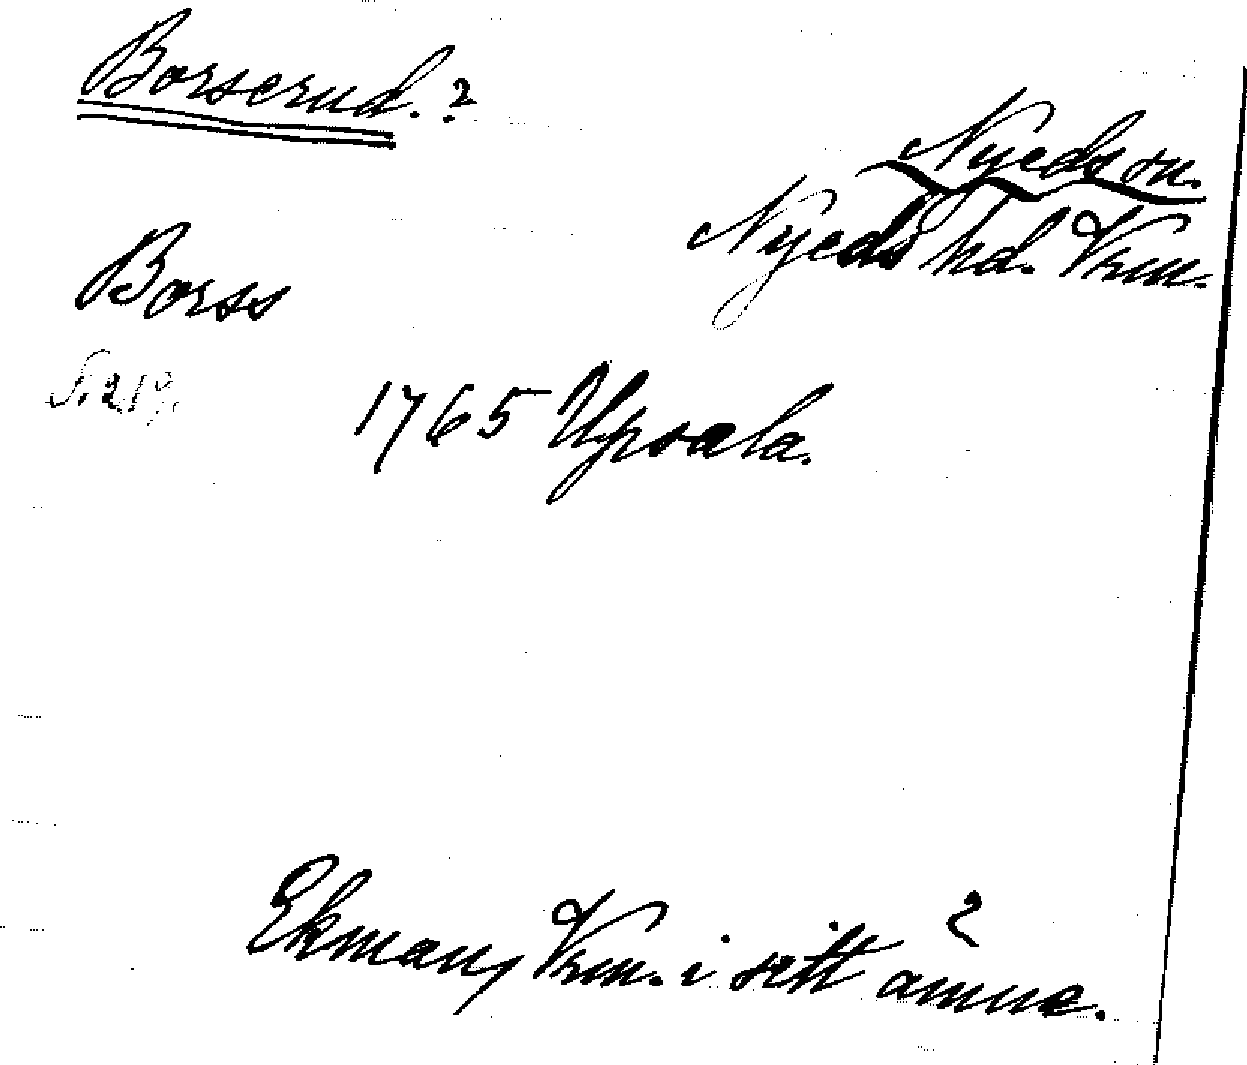 Borserud.?
Nyeds sn.
Nyeds hd. Vrm.
Borss
1765 Upsala.
Ekman, Vrm. i sitt ämne.